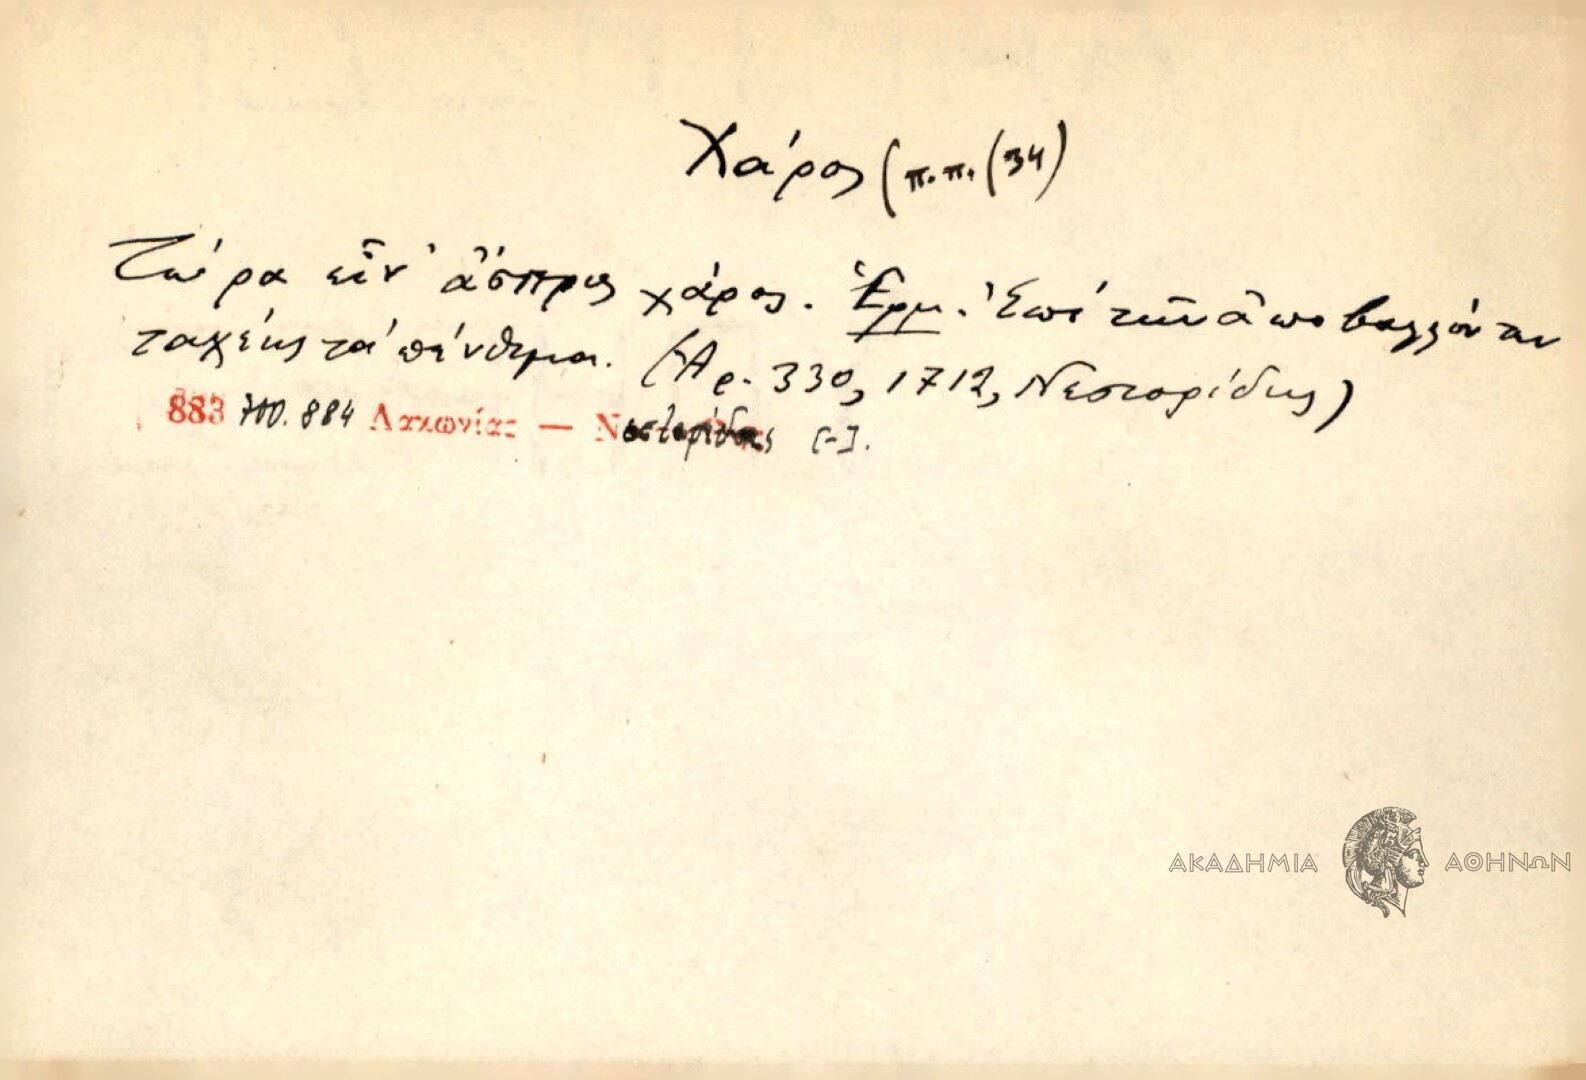 Χάρος (π.π. (34)
Τώρα εἶν' ἄσπρος χάρος. Ἑρμ. Ἐπὶ τῶν ἀποβαλλόντων
ταχέως τὰ πένθιμα. (Ἀρ. 330, 1712, Νεστορίδης)
883 884 Λακωνίας — Νεστορίδης [-].
ΑΚΑΔΗΜΙΑ ΑΘΗΝΩΝ